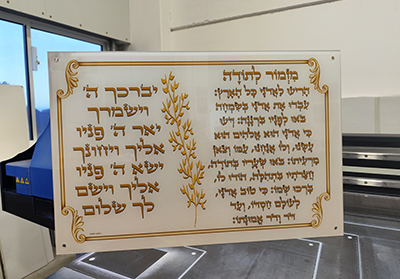 מזמור לתודה
הריעו לאדני כל הארץ:
עבדו את אדני בשמחה
באו לפניו ברננה: דעו
כי אדני הוא אלהים הוא
עשנו ולו אנחנו, עמו וצאן
מרעיתו: באו שעריו בתודה,
חצרתיו בתהלה, הודו לו,
ברכו שמו: כי טוב אדני,
לעולם חסדו, ועד
דר ודר אמונתו:
יברכך ה׳
וישמרך
יאר ה׳ פניו
אליך ויחונך
ישא ה׳ פניו
אליך וישם
לך שלום